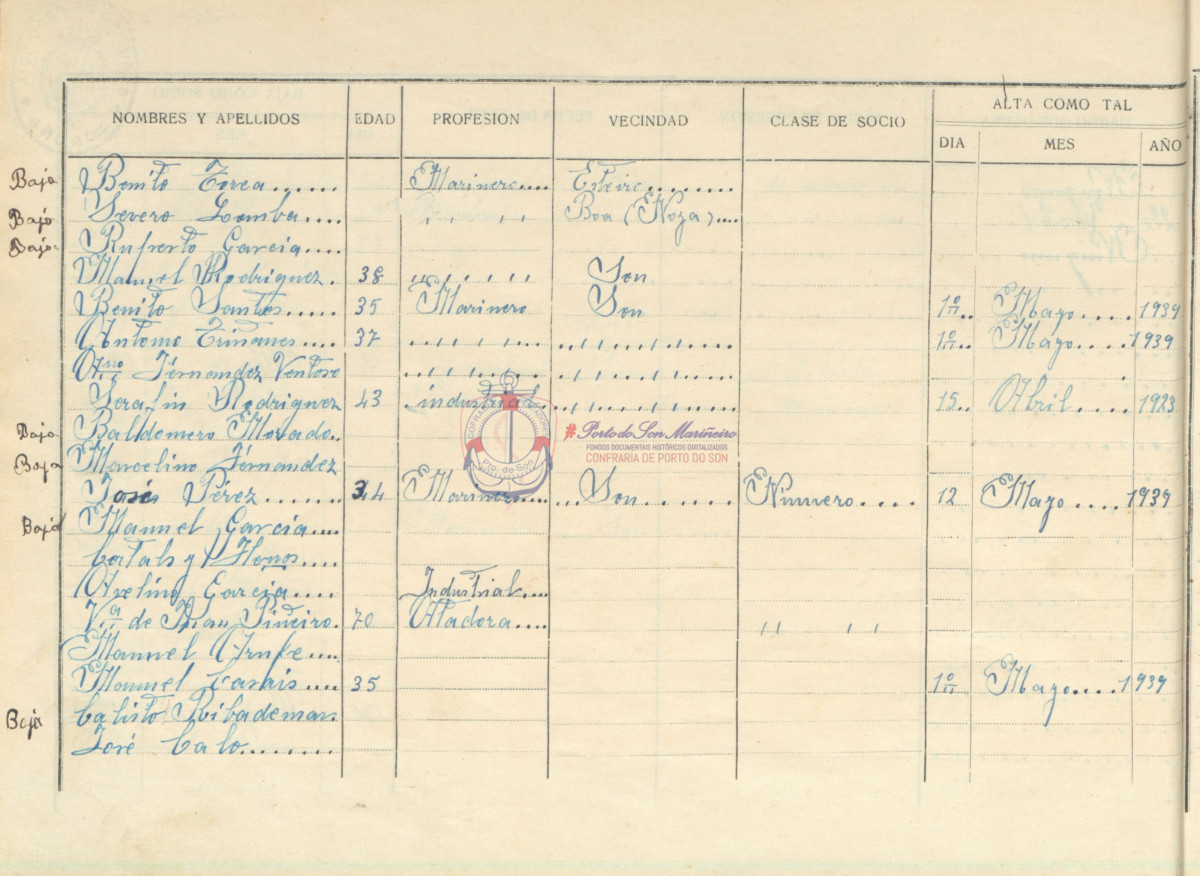 ALTA COMO TAL
NOMBRES Y APELLIDOS EDAD PROFESION VECINDAD CLASE DE SOCIO DIA MES AÑO
Baja Benito Torea....... Marinero.... Esteiro........
Bajo Severo Lomba.... " " " " Boa (Noya)....
Bajo Ruperto Garcia....
Manuel Rodriguez. 38 " " " " " " Son
Benito Santos..... 35 Marinero Son 1º.. Mayo.... 1939
Antonio .... 37 " " " " " " " " " " 1º.. Mayo.... 1939
Fernandez Ventoso " " " " " " " " " "
Serafin Rodriguez 43 industrial " " " " " 15.. Abril.... 1923
Bajo Baldomero ..
Baja Marcelino Fernandez
José Pérez....... 34 Marinero.... ...Son....... Número.... 12 Mayo.... 1939
Baja Manuel Garcia....
y ....
Avelino Garcia.... Industrial....
Vª de Piñeiro. 70 Atadora.... " "
Manuel ....
Manuel .... 35 1º Mayo.... 1939
Baja Calisto Ribademar.
José Calo........
COFRADIA
Pto. do Son
#Porto do Son Mariñeiro
FONDOS DOCUMENTAIS HISTÓRICOS DIXITALIZADOS
CONFRARÍA DE PORTO DO SON